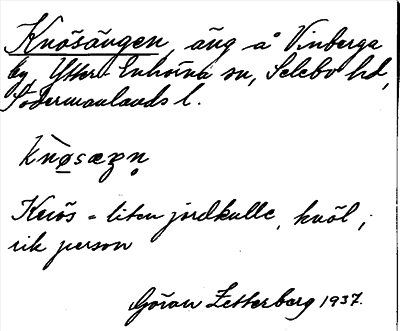 Knösängen, äng å Vinberga
by, Ytter-Enhörna sn, Selebo hd,
Södermanlands l.
knø̀sæŋn̥
Knös = liten jordkulle, knöl;
rik person
Göran Zetterberg 1937.